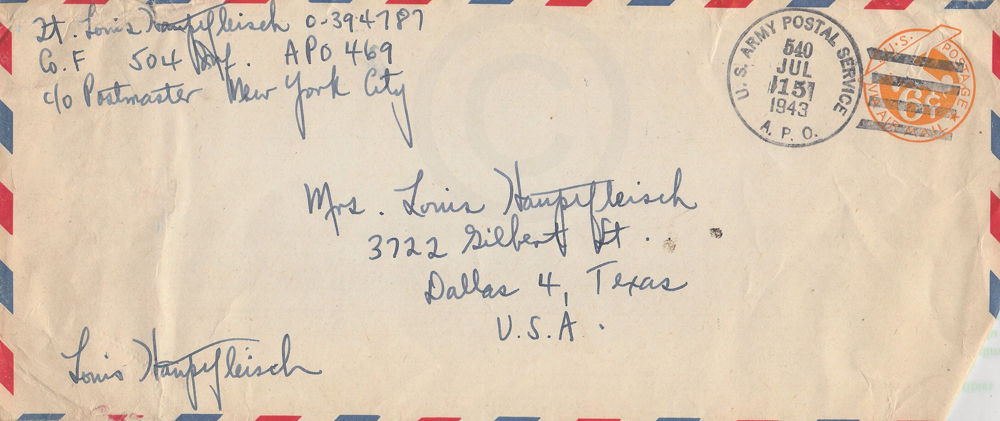 Lt. Louis Hauptfleisch O-394787
Co. F 504 Inf. APO 469
c/o Postmaster New York City
U.S. ARMY POSTAL SERVICE
540
JUL
15
1943
A. P. O.
U.S. POSTAGE
6¢
VIA AIR MAIL
Mrs. Louis Hauptfleisch
3722 Gilbert St.
Dallas 4, Texas
U.S.A.
Louis Hauptfleisch